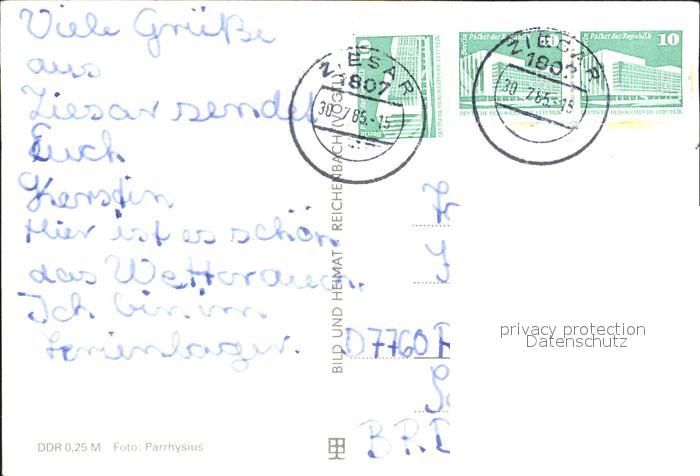 Viele Grüße
aus
Ziesar sendet
Euch
Kerstin
Hier ist es schön
das Wetter auch.
Ich bin im
Ferienlager.
DDR 0,25 M Foto: Parrhysius
BILD UND HEIMAT REICHENBACH (VOGTL)
ZIESAR
1807
30.-7.85.-15
Berlin Palast der Republik 10
DEUTSCHE DEMOKRATISCHE REPUBLIK
ZIESAR
1807
30.-7.85.-15
Berlin Palast der Republik 10
DEUTSCHE DEMOKRATISCHE REPUBLIK
D7760
BRD
privacy protection
Datenschutz